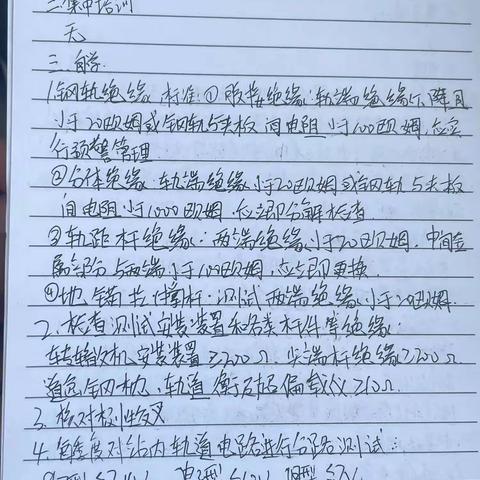 二.集中培训
无
三.自学.
1.钢轨绝缘标准:①胶接绝缘:轨端绝缘下降且
小于20欧姆或钢轨与夹板间电阻小于100欧姆,应实
行预警管理.
②分体绝缘:轨端绝缘小于20欧姆或钢轨与夹板
间电阻小于1000欧姆,应立即分解检查.
③轨距杆绝缘:两端绝缘小于20欧姆,中间金
属部分与两端小于10欧姆,应立即更换.
④地锚拉撑杆:测试两端绝缘小于20欧姆.
2.检查测试安装装置和各类杆件等绝缘:
转辙机安装装置≥200Ω.尖端杆绝缘≥200Ω
道岔钢枕、轨道衡及超偏载仪≥10Ω.
3.核对极性交叉
4.每季度对站内轨道电路进行分路测试: